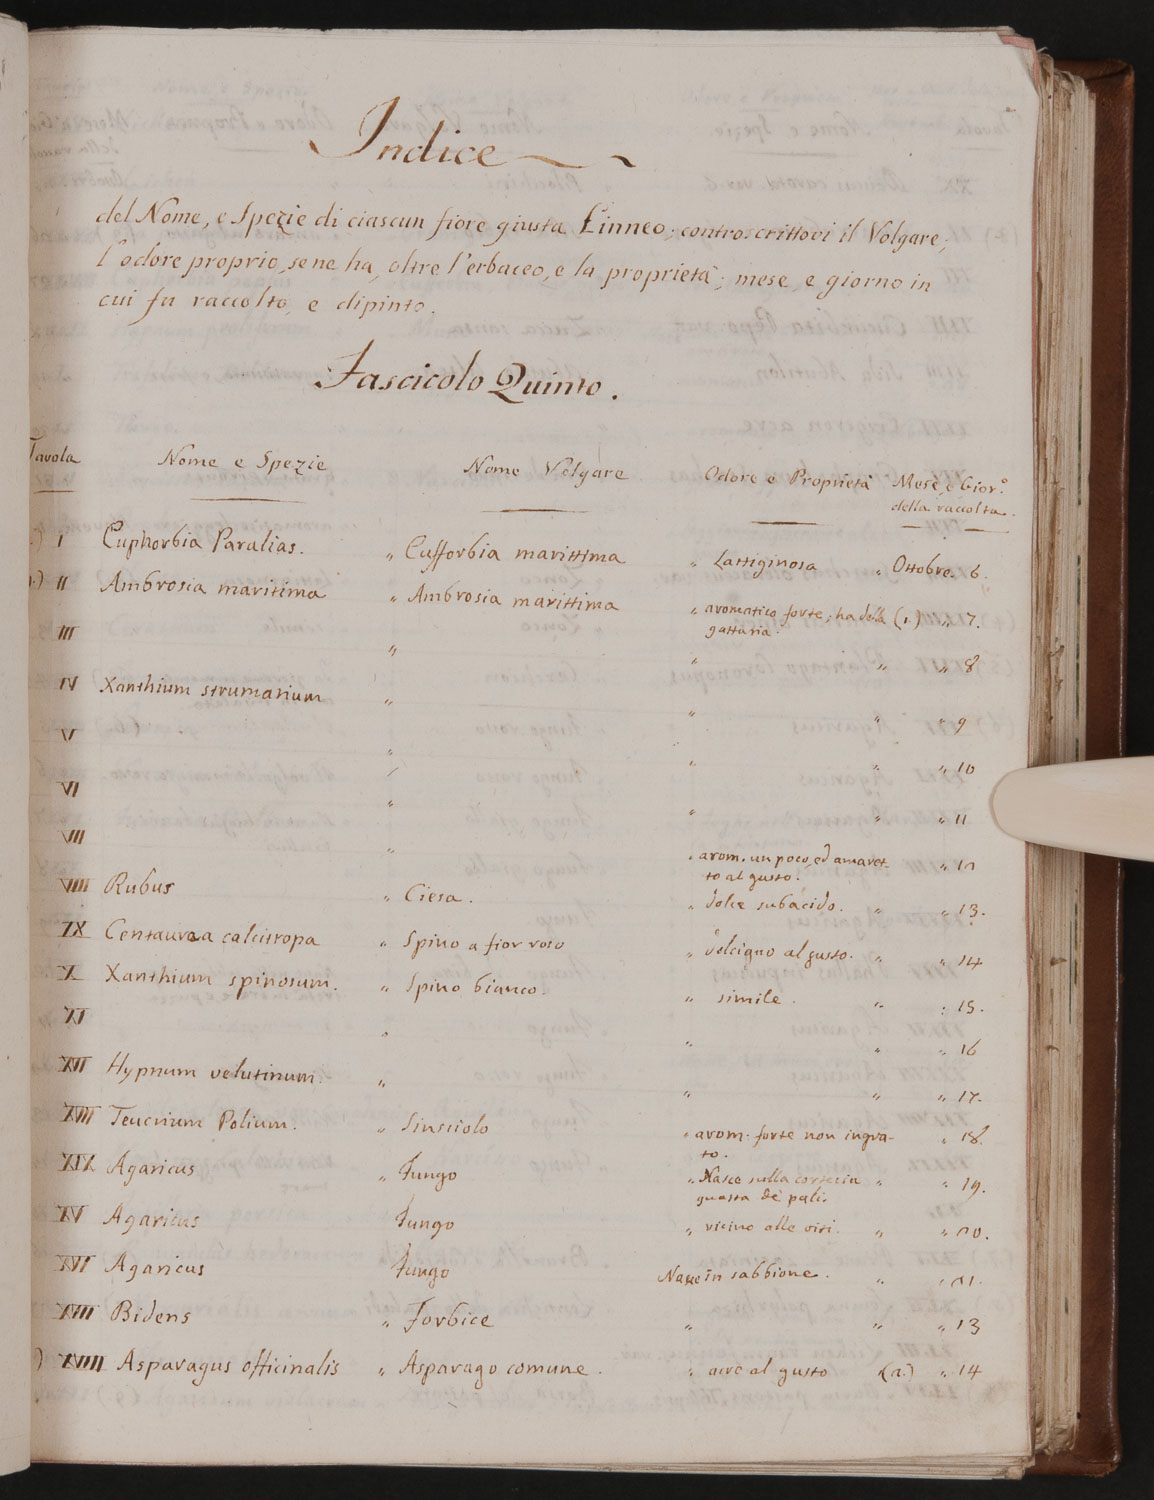 Indice
del Nome, e Spezie di ciascun fiore giusta Linneo; controscrittovi il Volgare;
l'odore proprio, se ne ha, oltre l'erbaceo, e la proprietà; mese, e giorno in
cui fu raccolto, e dipinto.
Fascicolo Quinto.
Tavola Nome e Spezie Nome Volgare Odore e Proprietà Mese, e Gior.º
della raccolta.
I Euphorbia Paralias. „ Eufforbia marittima „ Lattiginosa „ Ottobre. 6.
II Ambrosia maritima „ Ambrosia marittima „ aromatico forte; ha della (1.) „ 7.
gattaria.
III „ „ „ „ 8
IV Xanthium strumarium „ „ „ „ 9
V „ „ „ „ 10
VI „ „ „ „ 11
VII „ „ arom. un poco, ed amaret- „ 12
to al gusto.
VIII Rubus „ Ciesa. „ dolce subacido. „ „ 13.
IX Centaurea calcitropa „ Spino a fior roso „ dolcigno al gusto. „ „ 14
X Xanthium spinosum. „ Spino bianco. „ simile. „ : 15.
XI „ „ „ „ 16
XII Hypnum velutinum. „ „ „ „ 17.
XIII Teucrium Polium. „ Sinsciolo „ arom. forte non ingra- „ 18.
to.
XIX Agaricus „ Fungo „ Nasce sulla corteccia „ „ 19.
guasta de' pali.
XV Agaricus Fungo „ vicino alle viti. „ „ 20.
XVI Agaricus Fungo Nasce in sabbione. „ „ 21.
XVII Bidens „ Forbice „ „ „ 13
) XVIII Asparagus officinalis „ Asparago comune. „ acre al gusto (2.) „ 14